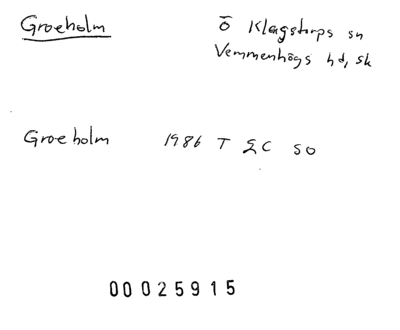 Groeholm
Ö Klagstorps sn
Vemmenhögs hd, sk
Groeholm 1986 T ÄC SO
00025915